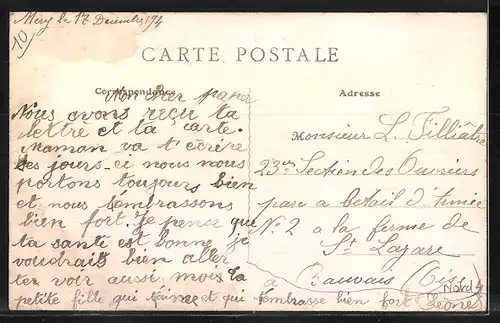 Mery le 17 Decembre 1914
10
CARTE POSTALE
Correspondance
Adresse
Mon cher papa
Nous avons reçu ta
lettre et ta carte.
Maman va t'écrire
ces jours-ci nous nous
portons toujours bien
et nous t'embrassons
bien fort. Je pense que
ta santé est bonne je
voudrais bien aller
te voir aussi moi ta
petite fille qui t'aime et qui t'embrasse bien fort Léone
Monsieur L. Filliâtre
23eme Section des Ouvriers
parc a betail d'Armée
No 2 a la ferme de
St Lazare
a Beauvais (Oise)
Nord 4